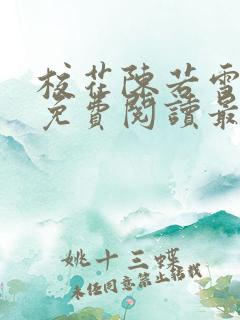 校花陳若雪
免費閱讀最
姚十三蝶
未经同意禁止转载